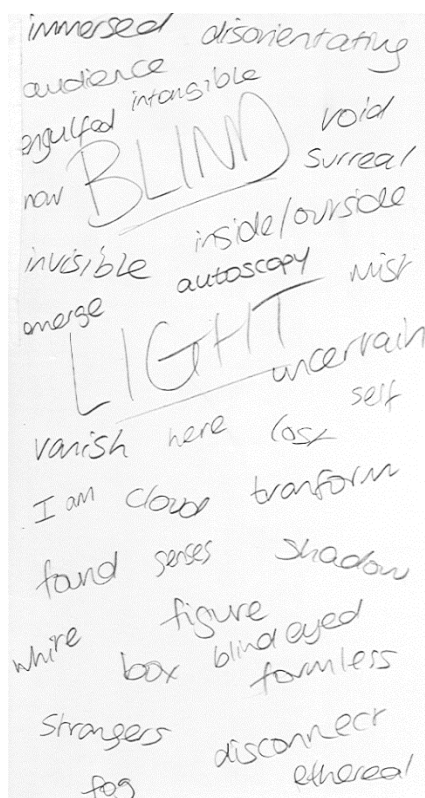 immersed disorientating
audience
engulfed intangible
BLIND void
now surreal
inside/outside
invisible autoscopy mist
emerge
LIGHT
uncertain
self
vanish here lost
I am cloud tranform
found senses shadow
figure
white box blind eyed
formless
strangers disconnect
fog ethereal